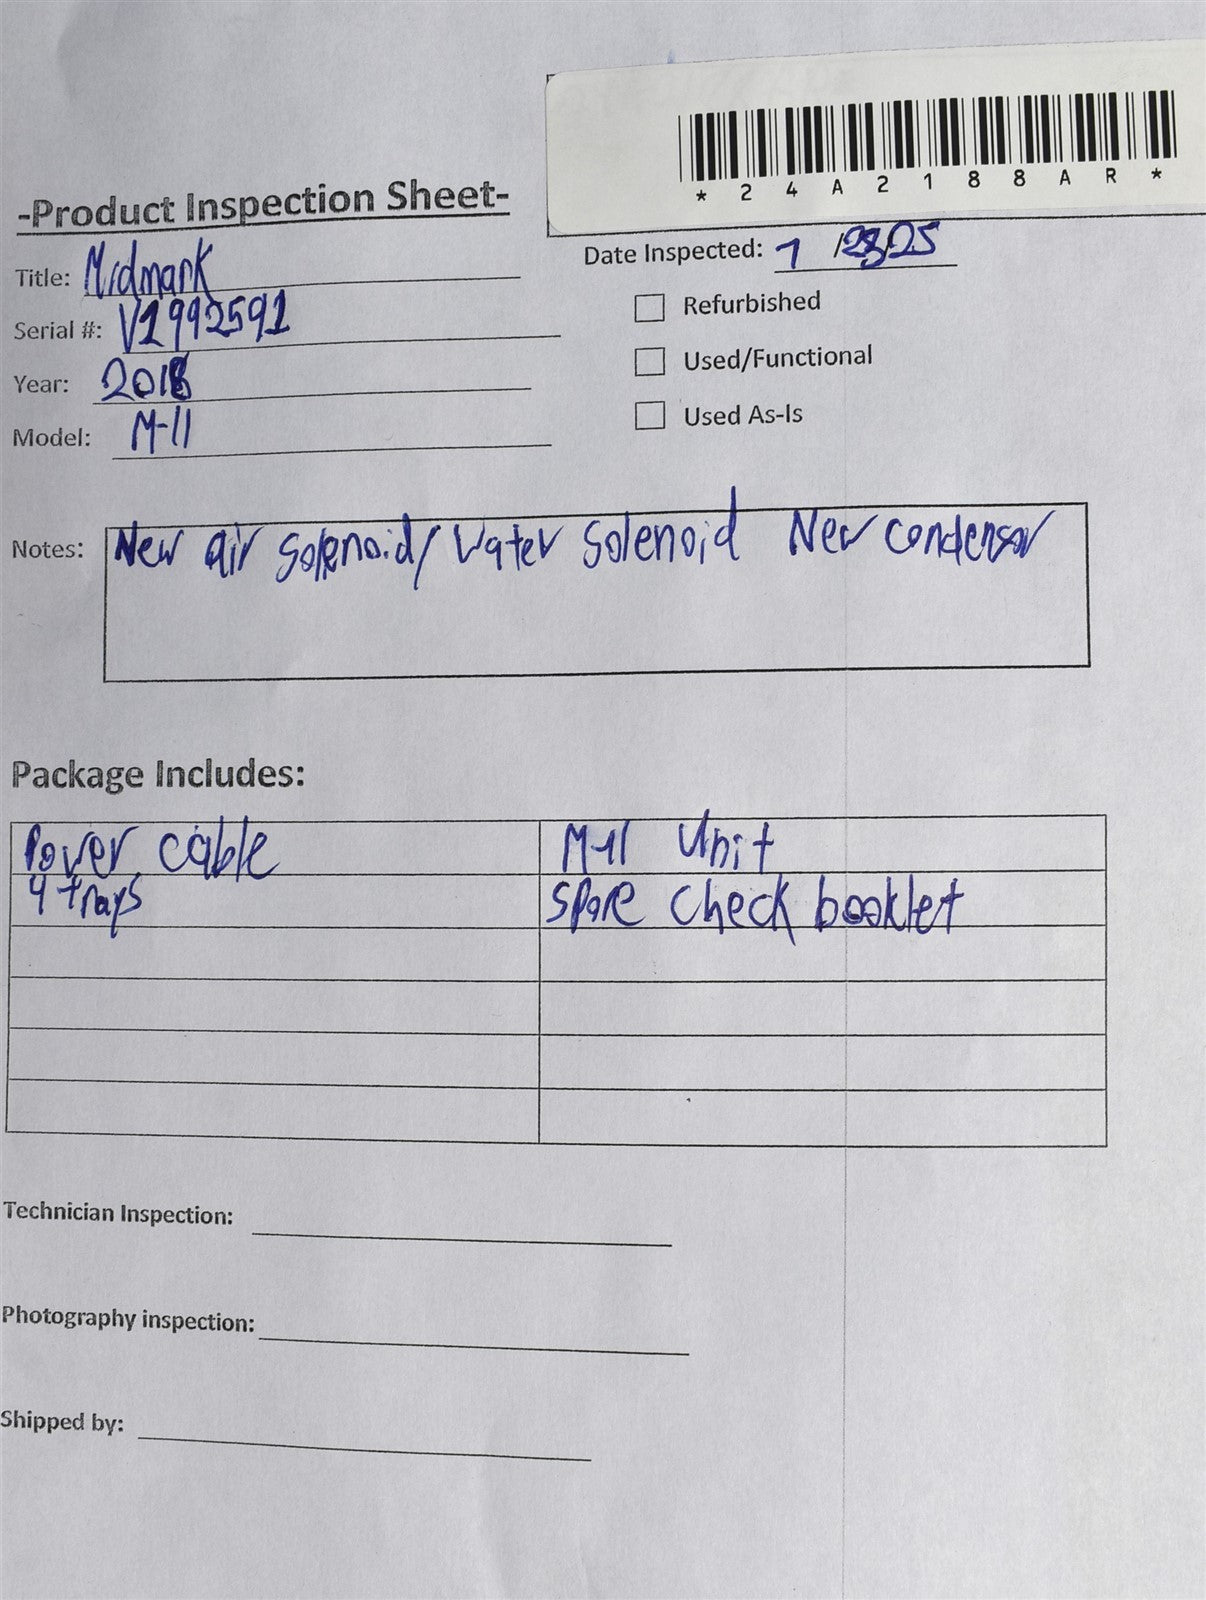 *24A2188AR*
-Product Inspection Sheet-
Date Inspected: 7/23/25
Title: Midmark
Serial #: V1992591
Year: 2018
Model: M-11
Refurbished
Used/Functional
Used As-Is
Notes: New air solenoid/Water Solenoid New condensor
Package Includes:
Power cable M-11 Unit
4 trays Spore check booklet
Technician Inspection:
Photography inspection:
Shipped by: